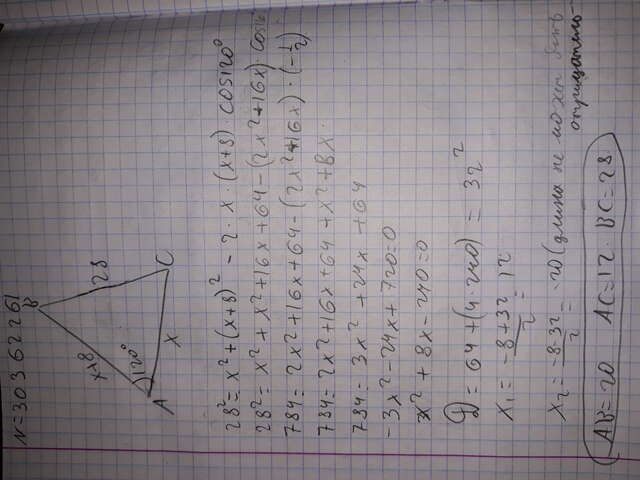 N=30362261
B
x+8
28
120°
A
x
C
28² = x² + (x+8)² - 2 · x · (x+8) · cos120°
28² = x² + x² + 16x + 64 - (2x² + 16x) · cos120°
784 = 2x² + 16x + 64 - (2x² + 16x) · (-1/2)
784 = 2x² + 16x + 64 + x² + 8x.
784 = 3x² + 24x + 64
-3x² - 24x + 720 = 0
x² + 8x - 240 = 0
D = 64 + (4 · 240) = 32²
x₁ = (-8 + 32)/2 = 12
x₂ = (-8 - 32)/2 = -20 (длина не может быть
отрицательно-
AB = 20 AC = 12 · BC = 28